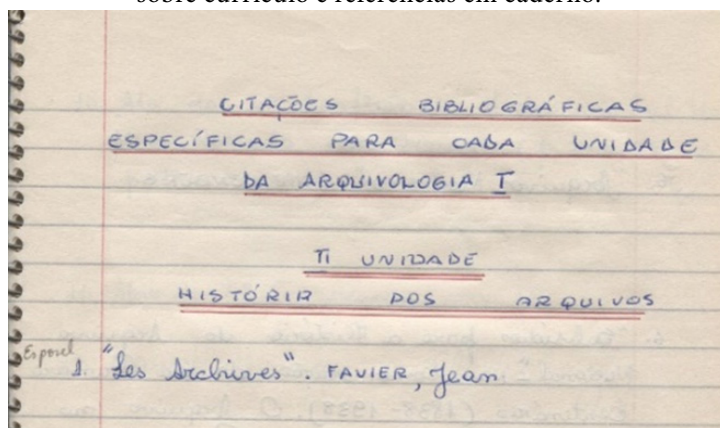 sobre currículo e referências em caderno.
CITAÇÕES BIBLIOGRÁFICAS
ESPECÍFICAS PARA CADA UNIDADE
DA ARQUIVOLOGIA I
II UNIDADE
HISTÓRIA DOS ARQUIVOS
Esposel
1. "Les Archives". FAVIER, Jean